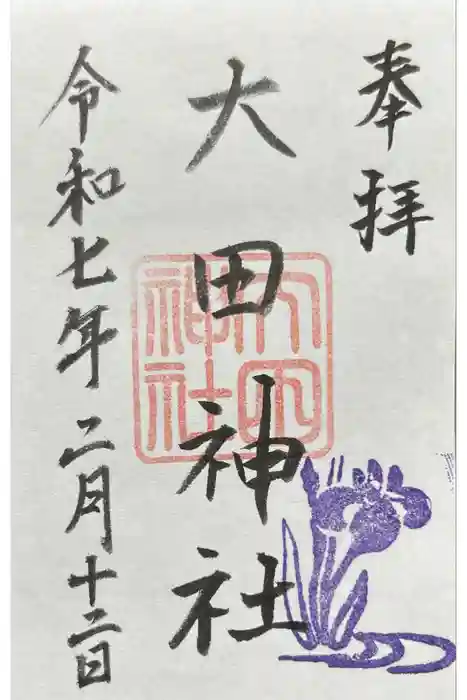 奉拝
大田神社
大田神社
令和七年二月十二日